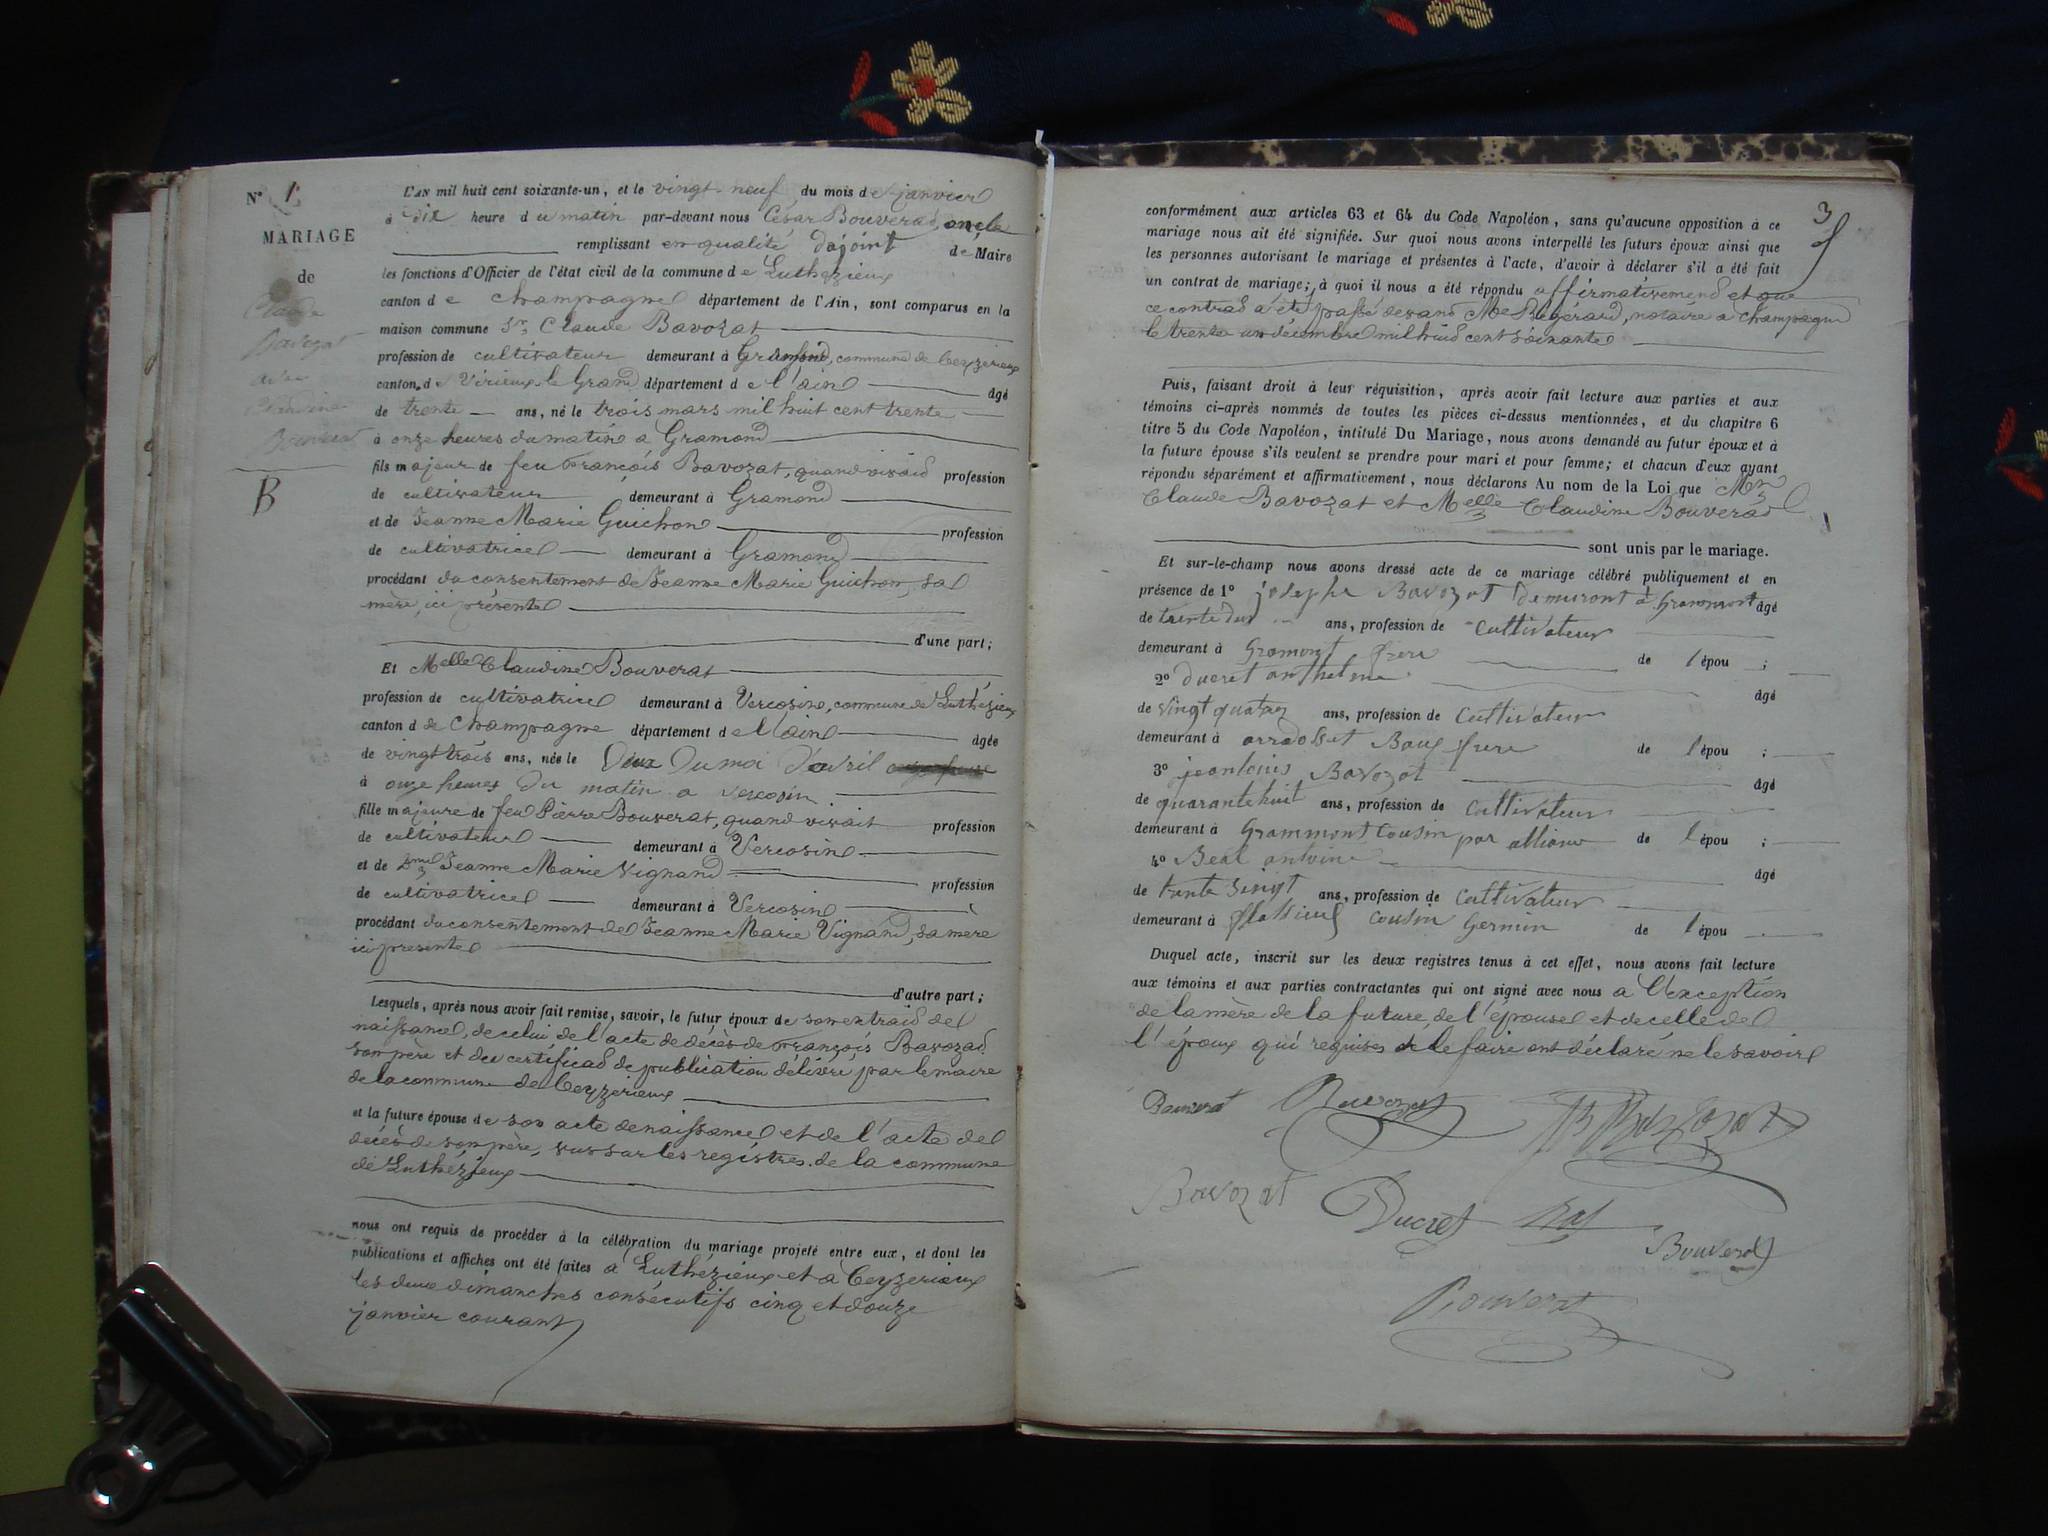 N° 1.
MARIAGE
de
Claude
Bavozat
avec
Claudine
Bouverat
B
L'AN mil huit cent soixante-un, et le vingt neuf du mois de janvier
à dix heure du matin par-devant nous César Bouverat, oncle
remplissant en qualité dajoint de Maire
les fonctions d'Officier de l'état civil de la commune de Luthézieux
canton de Champagne département de l'Ain, sont comparus en la
maison commune Sr. Claude Bavozat
profession de cultivateur demeurant à Gramond, commune de Ceyzerieux
canton de Virieux le Grand département de l'ain âgé
de trente ans, né le trois mars mil huit cent trente
à onze heures du matin a Gramond
fils majeur de feu François Bavozat, quand vivait profession
de cultivateur demeurant à Gramond
et de Jeanne Marie Guichon profession
de cultivatrice demeurant à Gramond
procédant du consentement de Jeanne Marie Guichon, sa
mère, ici présente
d'une part;
Et Melle Claudine Bouverat
profession de cultivatrice demeurant à Vercosin, commune de Luthézieux
canton d de Champagne département de l'ain âgée
de vingt trois ans, née le Deux Du moi d'avril
à onze heures Du matin a vercosin
fille majeure de feu Pierre Bouverat, quand vivait profession
de cultivateur demeurant à Vercosin
et de Jeanne Marie Vignand profession
de cultivatrice demeurant à Vercosin
procédant du consentement de Jeanne Marie Vignand, sa mère
ici presente
d'autre part;
Lesquels, après nous avoir fait remise, savoir, le futur époux de son extrait de
naissance, de celui de l'acte de décès de François Bavozat
son père et du certificat de publication délivré par le maire
de la commune de Ceyzerieux
et la future épouse de son acte de naissance et de l'acte de
décès de son père, vus sur les registres de la commune
de Luthézieux
nous ont requis de procéder à la célébration du mariage projeté entre eux, et dont les
publications et affiches ont été faites à Luthézieux et à Ceyzerieux
les deux dimanches consécutifs cinq et douze
janvier courant
3
conformément aux articles 63 et 64 du Code Napoléon, sans qu'aucune opposition à ce
mariage nous ait été signifiée. Sur quoi nous avons interpellé les futurs époux ainsi que
les personnes autorisant le mariage et présentes à l'acte, d'avoir à déclarer s'il a été fait
un contrat de mariage; à quoi il nous a été répondu affirmativement et que
ce contrat a été passé devant Me notaire à Champagne
le trente un décembre mil huit cent soixante
Puis, faisant droit à leur réquisition, après avoir fait lecture aux parties et aux
témoins ci-après nommés de toutes les pièces ci-dessus mentionnées, et du chapitre 6
titre 5 du Code Napoléon, intitulé Du Mariage, nous avons demandé au futur époux et à
la future épouse s'ils veulent se prendre pour mari et pour femme; et chacun d'eux ayant
répondu séparément et affirmativement, nous déclarons Au nom de la Loi que Mr
Claude Bavozat et Melle Claudine Bouverat
sont unis par le mariage.
Et sur-le-champ nous avons dressé acte de ce mariage célébré publiquement et en
présence de 1° josephe Bavozat Demuront à Grammont âgé
de trente deux ans, profession de Cultivateur
demeurant à Gramont frere de l'épou ;
2° ducret anthelme âgé
de vingt quatre ans, profession de Cultivateur
demeurant à Baux frere de l'épou ;
3° jeanlouis Bavozat âgé
de quarante huit ans, profession de Cultivateur
demeurant à Grammont Cousin par alliance de l'épou ;
4° Béal antoine âgé
de ans, profession de Cultivateur
demeurant à cousin Germin de l'épou
Duquel acte, inscrit sur les deux registres tenus à cet effet, nous avons fait lecture
aux témoins et aux parties contractantes qui ont signé avec nous a l'exception
de la mère de la future, de l'épouse et de celle de
l'époux qui requises de le faire ont déclaré ne le savoir
Bouverat Bavozat Bavozat
Bavozat Ducret Bouverat
Bouverat